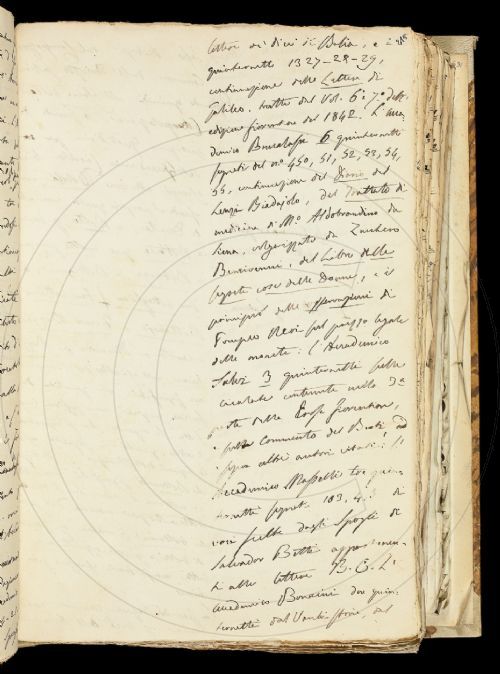 lettere dei dieci di Balia, e
quinternetti 1327-28-29,
continuazione delle Lettere di
Galileo, tratte dal Vol. 6° 7° della
edizione fiorentina del 1842. L'Acca-
demico Brucalassi 6 quinternetti
segnati del nº 450, 51, 52, 53, 54,
55, continuazione del Diario del
Lenzi Biadajolo, del Trattato di
medicina di Mº Aldobrandino da
Siena, volgarizzato da Zucchero
Bencivenni, del Libro delle
segrete cose delle Donne, e il
principio delle di
Pompeo Neri sul prezzo legale
delle monete: l'Accademico
3 quinternetti sulle
cicalate contenute nella 3ª
parte delle Prose fiorentine,
sulla Commento del Buti, ad
altri autori citati: l'
Accademico Masselli tre quin-
ternetti segnati 103, 4.
con scelte dagli Spogli di
Salvador Betti appartenen-
ti alle lettere B. C. L'
Accademico Bencini due quin-
ternetti dal dal